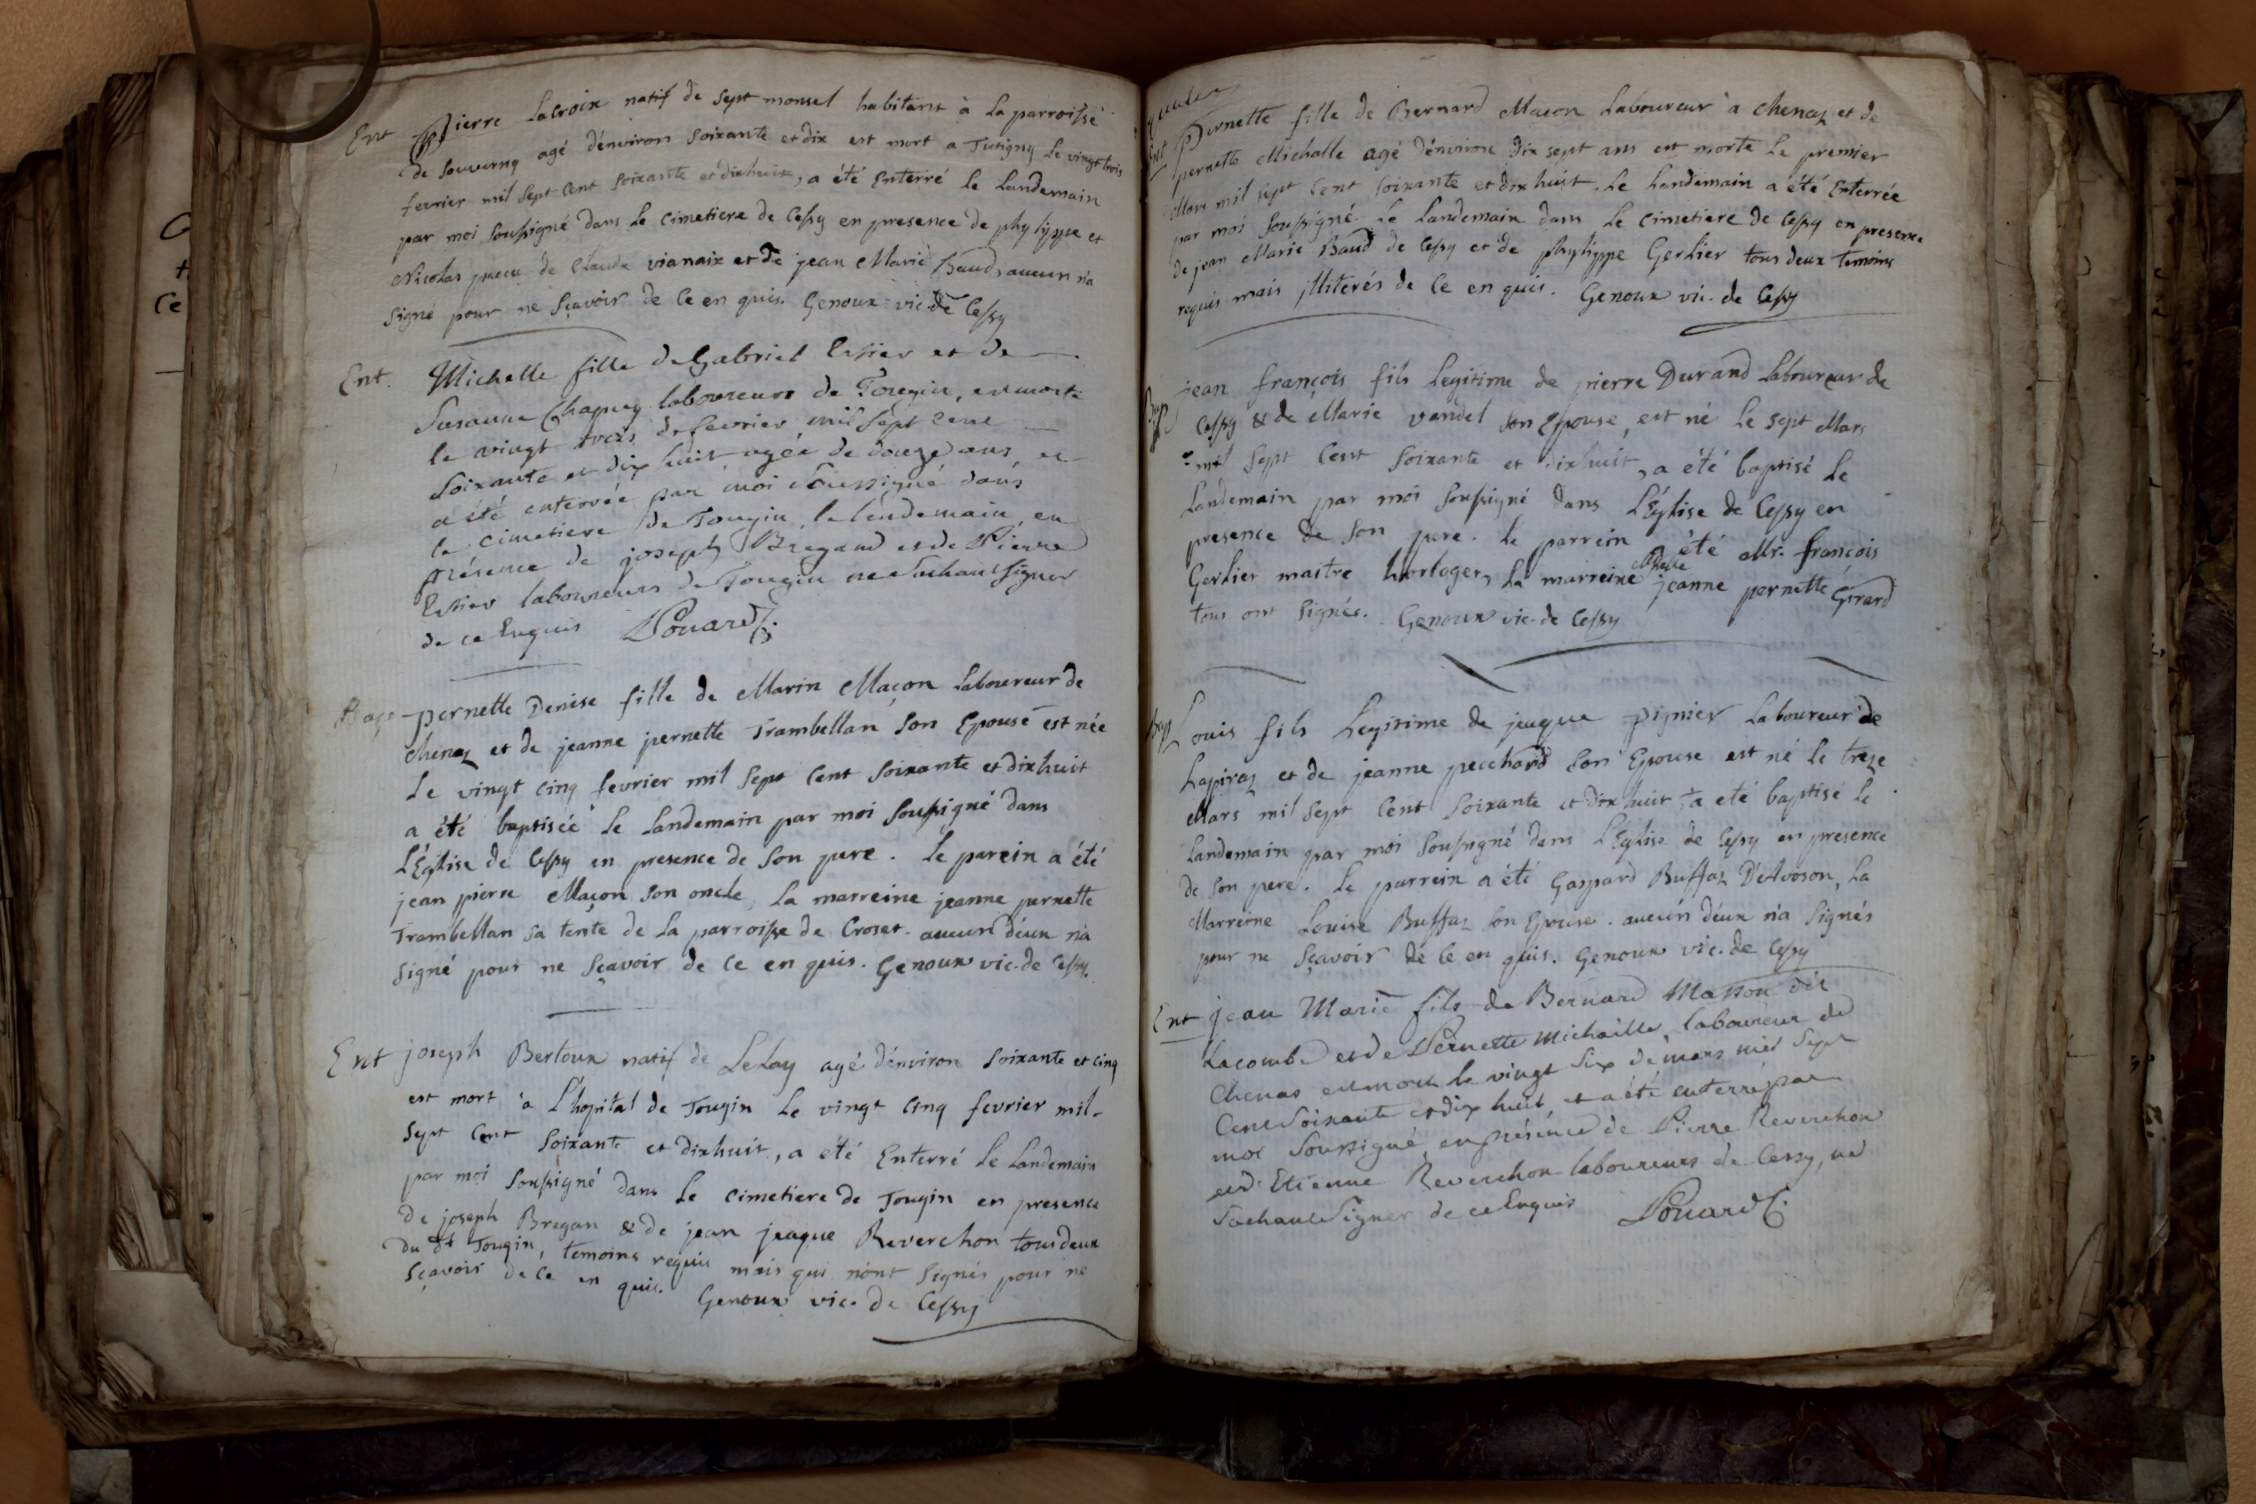 Ent Pierre Lacroix natif de Sept monsel habitant à La parroisse
de Sauverny agé d'environ Soixante et dix est mort a Tutigny Le vingt trois
fevrier mil Sept Cent Soixante et dixhuit, a été Enterré Le Landemain
par moi Soussigné dans Le Cimetiere de Cessy en presence de phylippe et
Nicolas de Claude vianaix et de jean Marie Baud, aucun n'a
Signé pour ne Sçavoir de Ce en quis. Genoux vic. de Cessy
Ent. Michelle fille de Gabriel Essier et de
Susanne Chapuy laboureurs de Tougin, est morte
le vingt trois de fevrier mil Sept cent
Soixante et dix huit agée de douze ans, et
a été enterrée par moi Soussigné dans
le cimetiere de Tougin, le lendemain, en
présence de joseph Bregand et de Pierre
Essier laboureurs de Tougin ne Sachant Signer
de ce Enquis Pouard C.
Bap. pernette Denise fille de Marin Maçon Laboureur de
Chenaz et de jeanne pernette Trambellan Son Epouse est née
Le vingt cinq fevrier mil Sept Cent Soixante et dixhuit
a été baptisée Le Landemain par moi Soussigné dans
L'Eglise de Cessy en presence de Son pere. Le parein a été
jean pierre Maçon Son oncle, La marreine jeanne pernette
Trambellan Sa tente de La parroisse de Crozet. aucun d'eux n'a
Signé pour ne Sçavoir de Ce en quis. Genoux vic. de Cessy.
Ent joseph Bertoux natif de Lelay agé d'environ Soixante et cinq
est mort à L'hopital de Tougin Le vingt Cinq fevrier mil-
Sept Cent Soixante et dixhuit, a été Enterré Le Landemain
par moi Soussigné dans Le Cimetiere de Tougin en presence
De joseph Bregan & de jean jeaque Reverchon tous deux
Du dt Tougin, temoins requis mais qui n'ont Signés pour ne
Sçavoir de Ce en quis. Genoux vic. de Cessy
Ent Pernette fille de Bernard Maçon Laboureur à Chenaz et de
pernette Michalle agé d'environ dix sept ans est morte Le premier
Mars mil Sept Cent Soixante et dix huit. Le Landemain a été Enterrée
par moi Soussigné Le Landemain dans Le Cimetiere de Cessy en presence
de jean Marie Baud de Cessy et de phylippe Gerlier tous deux temoins
requis mais illiterés de Ce en quis. Genoux vic. de Cessy
Bap jean françois fils Legitime de pierre Durand Laboureur de
Cessy & de Marie vandel Son Epouse, est né Le Sept Mars
mil Sept Cent Soixante et dixhuit, a été baptisé Le
Landemain par moi Soussigné dans L'Eglise de Cessy en
presence de Son pere. Le parrein été Mr. françois
Gerlier maitre horloger, La marreine jeanne pernette Girard
tous ont Signés. Genoux vic. de Cessy
Bap Louis fils Legitime de jeaque Pignier Laboureur de
Lapiraz et de jeanne pecchard Son Epouse est né le treze
Mars mil Sept Cent Soixante et dix huit a eté baptisé Le
Landemain par moi Soussigné dans L'Eglise de Cessy en presence
de Son pere. Le parrein a été Gaspard Buffaz D'Avoson, La
Marreine Louise Buffaz Son Epouse. aucun d'eux n'a Signés
pour ne Sçavoir de Ce en quis. Genoux vic. de Cessy
Ent jean Marie fils de Bernard Masson dit
Lacombe et de Pernette Michaille, laboureur de
Chenas est mort le vingt Six de mars mil Sept
Cent Soixante et dix huit, et a été enterré par
moi Soussigné en présence de Pierre Reverchon
et d'Etienne Reverchon laboureurs de Cessy, ne
Sachant Signer de ce Enquis Pouard C.